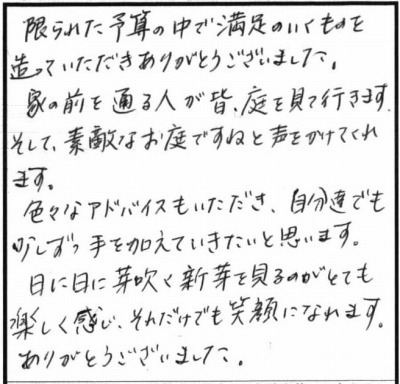 限られた予算の中で満足のいくものを
造っていただきありがとうございました。
家の前を通る人が皆、庭を見て行きます。
そして、素敵なお庭ですねと声をかけてくれ
ます。
色々なアドバイスもいただき、自分達でも
少しずつ手を加えていきたいと思います。
日に日に芽吹く新芽を見るのがとても
楽しく感じ、それだけでも笑顔になれます。
ありがとうございました。